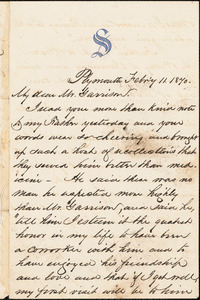 S
Plymouth Feb'y 11. 1870.
My dear Mr. Garrison.
I read your more than kind note
to my Father yesterday and your
words were so cheering and brought
up such a host of recollections that
they served him better than med-
icine - He said there was no
man he respected more highly
than Mr. Garrison, and this he,
tell him I esteem it the greatest
honor in my life to have been
a coworker with him and to
have enjoyed his friendship
and love and that if I get well,
my first visit will be to him